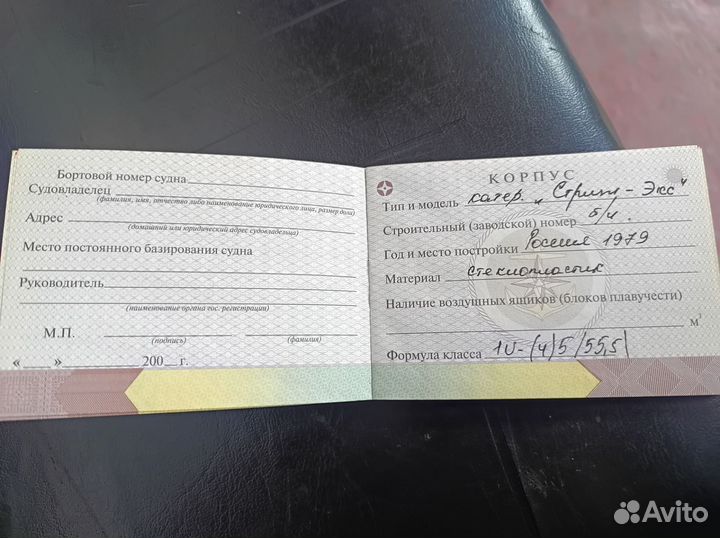 Бортовой номер судна
Судовладелец
(фамилия, имя, отчество либо наименование юридического лица, размер доли)
Адрес
(домашний или юридический адрес судовладельца)
Место постоянного базирования судна
Руководитель
(наименование органа гос. регистрации)
М.П.
(подпись) (фамилия)
« » 200 г.
КОРПУС
Тип и модель катер. „Стрит-Экс“
Строительный (заводской) номер б/н.
Год и место постройки Россия 1979
Материал стеклопластик
Наличие воздушных ящиков (блоков плавучести)
м³
Формула класса IV-(4)5/55,5
Avito